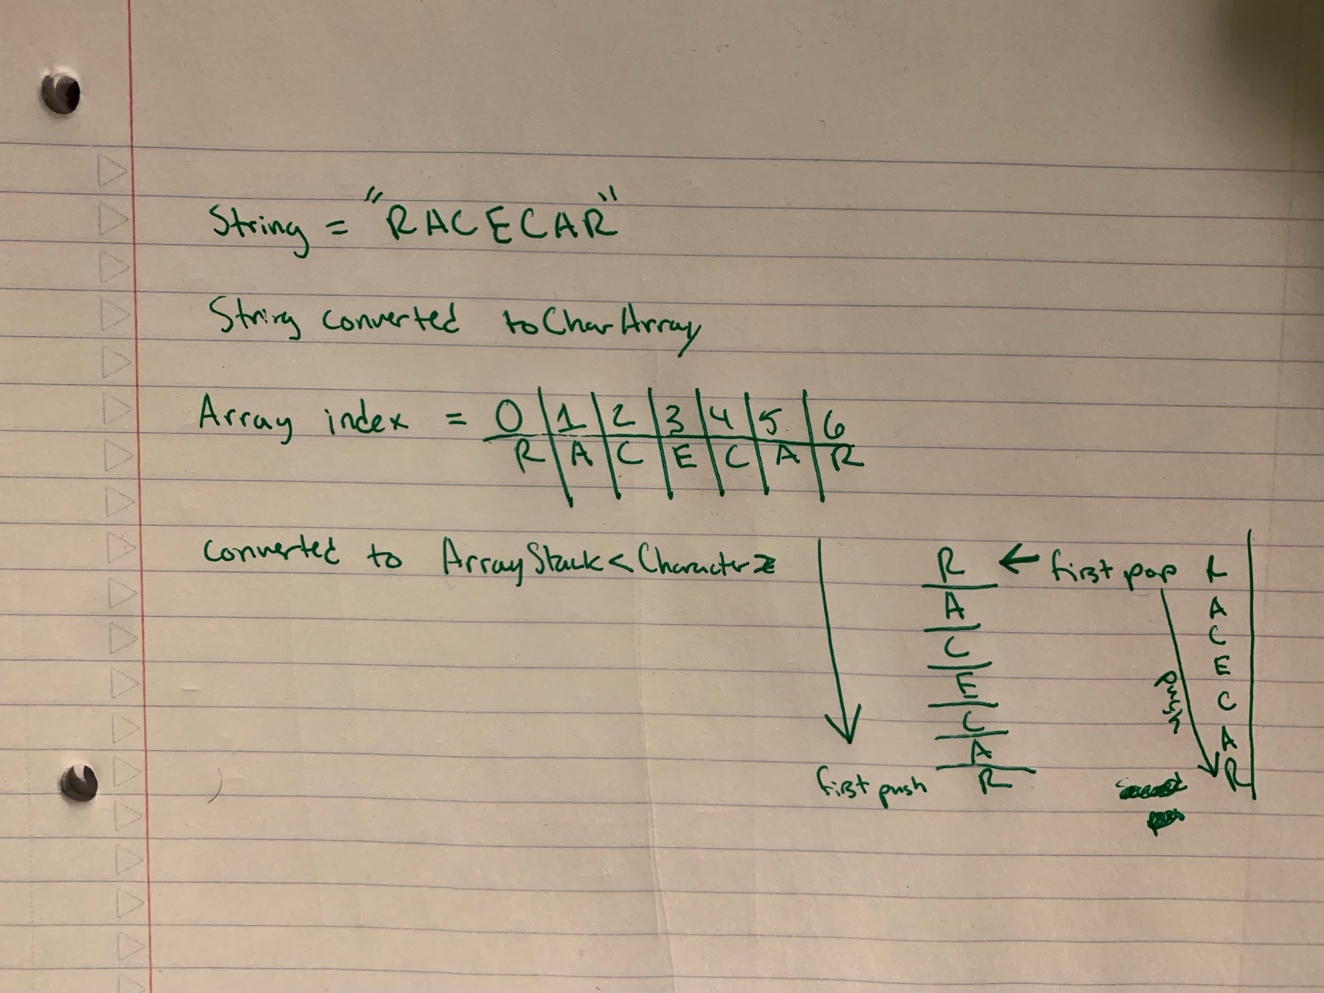 String = "RACECAR"
String converted toCharArray
Array index = 0 1 2 3 4 5 6
R A C E C A R
converted to ArrayStack<Character>
R ← first pop R
A A
C C
E E
C push C
A A
first push R R